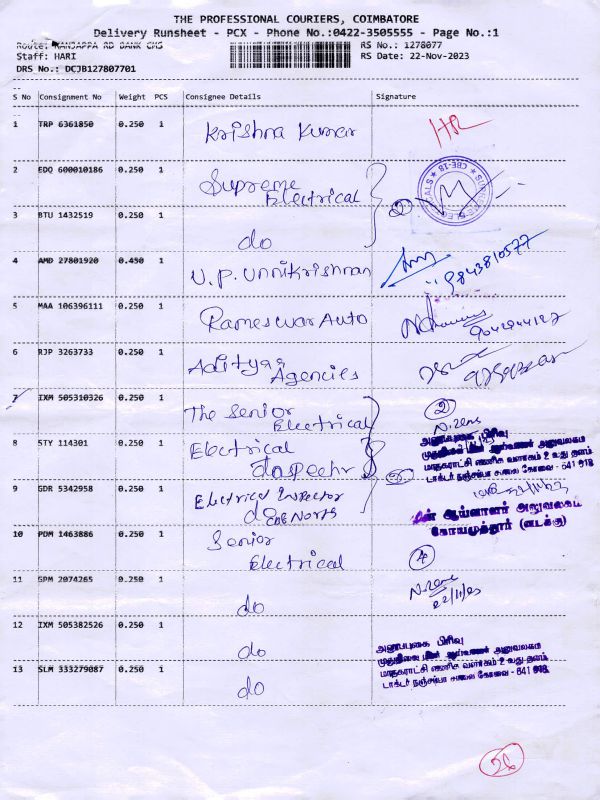 THE PROFESSIONAL COURIERS, COIMBATORE
Delivery Runsheet - PCX - Phone No.:0422-3505555 - Page No.:1
Route: NANJAPPA RD BANK CMS
RS No.: 1278077
Staff: HARI
RS Date: 22-Nov-2023
DRS No.: DCJB127807701
S No Consignment No Weight PCS Consignee Details Signature
1 TRP 6361850 0.250 1 Krishna Kumar
2 EDQ 600010186 0.250 1 Supreme Electrical
CBE-18
3 BTU 1432519 0.250 1 do
4 AMD 27801920 0.450 1 U.P. Unnikrishnan
9843810577
5 MAA 106396111 0.250 1 Rameswar Auto
6 RJP 3263733 0.250 1 Adityaa Agencies
7 IXM 505310326 0.250 1 The Senior Electrical
2
8 STY 114301 0.250 1 Electrical
அனுப்புகை பிரிவு
மாநகராட்சி வணிக வளாகம் 2 வது தளம்
டாக்டர் நஞ்சப்பா சாலை கோவை - 641 018
9 GDR 5342958 0.250 1 Electrical Inspector
do CBE North
மின் ஆய்வாளர் அலுவலகம்
கோயமுத்தூர் (வடக்கு)
10 PDM 1463886 0.250 1 Senior Electrical
4
11 GPM 2074265 0.250 1 do
22/11/23
12 IXM 505382526 0.250 1 do
அனுப்புகை பிரிவு
மாநகராட்சி வணிக வளாகம் 2 வது தளம்
டாக்டர் நஞ்சப்பா சாலை கோவை - 641 018
13 SLM 333279087 0.250 1 do
26